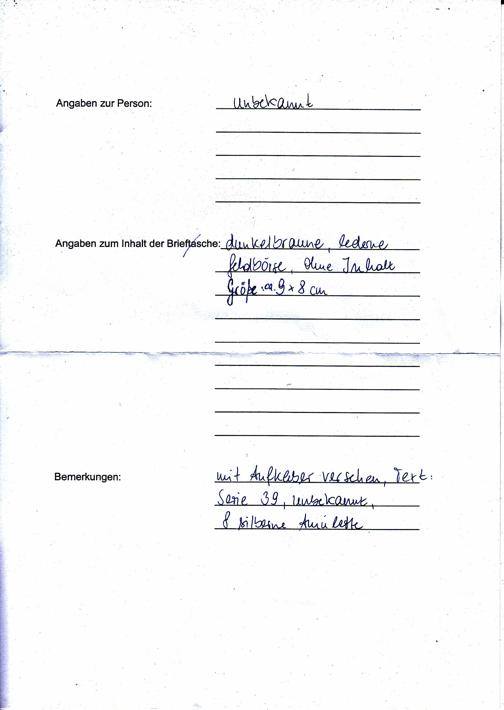 Angaben zur Person: unbekannt
Angaben zum Inhalt der Brieftasche: dunkelbraune, lederne
Geldbörse, ohne Inhalt
Größe ca. 9 x 8 cm
Bemerkungen: mit Aufkleber versehen, Text:
Serie 39, unbekannt,
8 silberne Amulette